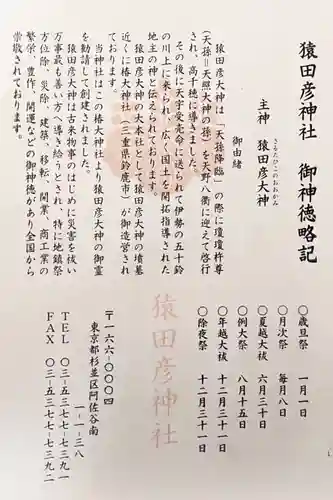 猿田彦神社　御神徳略記
主神　猿田彦大神
さるたひこのおおかみ
御由緒
猿田彦大神は「天孫降臨」の際に瓊瓊杵尊
(天孫＝天照大神の孫)を天野八衢に迎えて啓行
され、高千穂に導きました。
その後に天宇受売命に送られて伊勢の五十鈴
の川上に来られ、広く国土を開拓指導された
地主の神と伝えられております。
猿田彦大神の大本社として猿田彦大神の墳墓
近くに椿大神社(三重県鈴鹿市)が御造営され
ております。
当神社はこの椿大神社より猿田彦大神の御霊
を勧請して創建されました。
猿田彦大神は古来物事のはじめに災害を祓い
万事最も善い方へ導き給うとされ、特に地鎮祭
方位除、災除、建築、移転、開業、商工業の
繁栄、豊作、開運などの御神徳があり全国から
崇敬されております。
〇歳旦祭　一月一日
〇月次祭　毎月八日
〇夏越大祓　六月三十日
〇例大祭　八月十五日
〇年越大祓　十二月三十一日
〇除夜祭　十二月三十一日
猿田彦神社
〒一六六-〇〇〇四
東京都杉並区阿佐谷南
一-一-三八
TEL　〇三-五三七七-七三九一
FAX　〇三-五三七七-七三九二